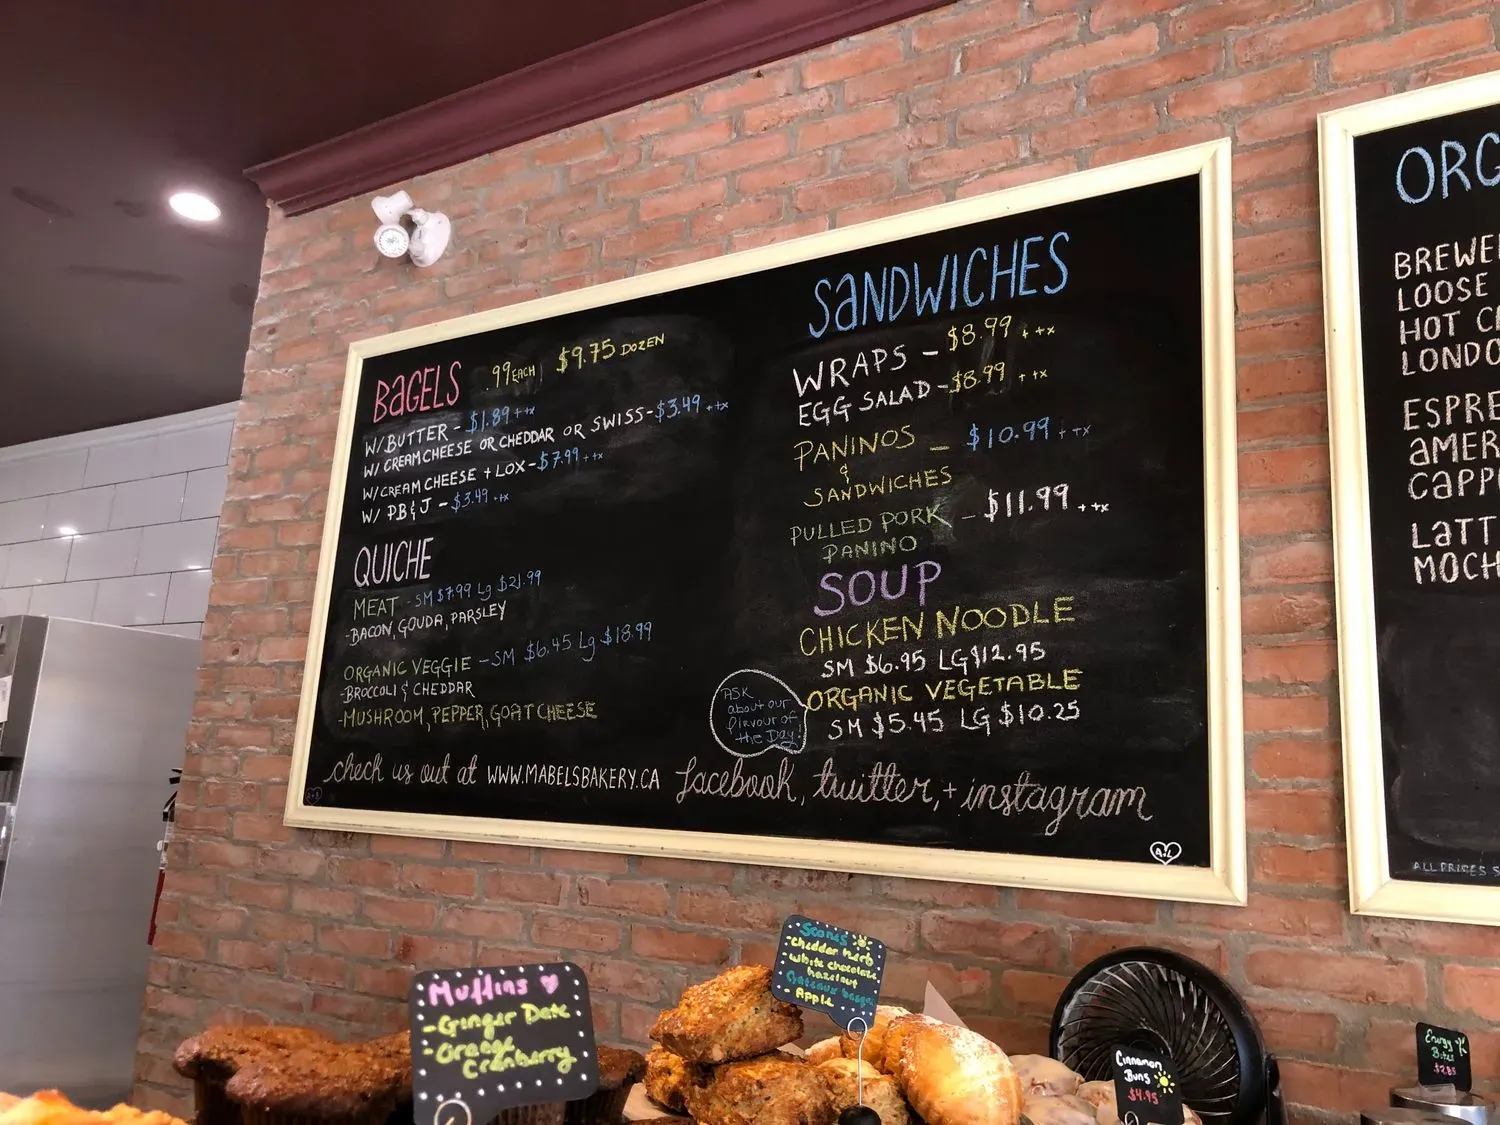 BAGELS .99 EACH $9.75 DOZEN
W/ BUTTER - $1.89 ++x
W/ CREAMCHEESE OR CHEDDAR OR SWISS - $3.49 ++x
W/ CREAM CHEESE + LOX - $7.99 ++x
W/ PB&J - $3.49 ++x
QUICHE
MEAT - SM $7.99 Lg $21.99
-BACON, GOUDA, PARSLEY
ORGANIC VEGGIE - SM $6.45 Lg $18.99
-BROCCOLI & CHEDDAR
-MUSHROOM, PEPPER, GOAT CHEESE
SANDWICHES
WRAPS - $8.99 +++x
EGG SALAD - $8.99 ++x
PANINOS - $10.99 ++x
&
SANDWICHES
PULLED PORK - $11.99 ++x
PANINO
SOUP
CHICKEN NOODLE
SM $6.95 LG $12.95
ORGANIC VEGETABLE
SM $5.45 LG $10.25
ASK
about our
flavour of
the Day!
check us out at WWW.MABELSBAKERY.CA facebook, twitter, + instagram
A+L
ORG
BREWE
LOOSE
HOT C
LONDO
ESPRE
AMER
CAPP
LATT
MOCH
ALL PRICES
Muffins
-Ginger Date
-Orange
Cranberry
Scones
-Cheddar Herb
-White chocolate
hazelnut
-Apple
Cinnamon
Buns
$4.95
Energy
Bites
$2.85